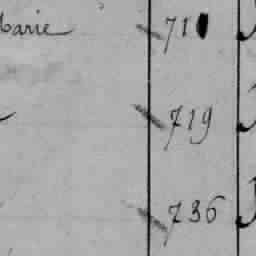 Marie 71
719
736